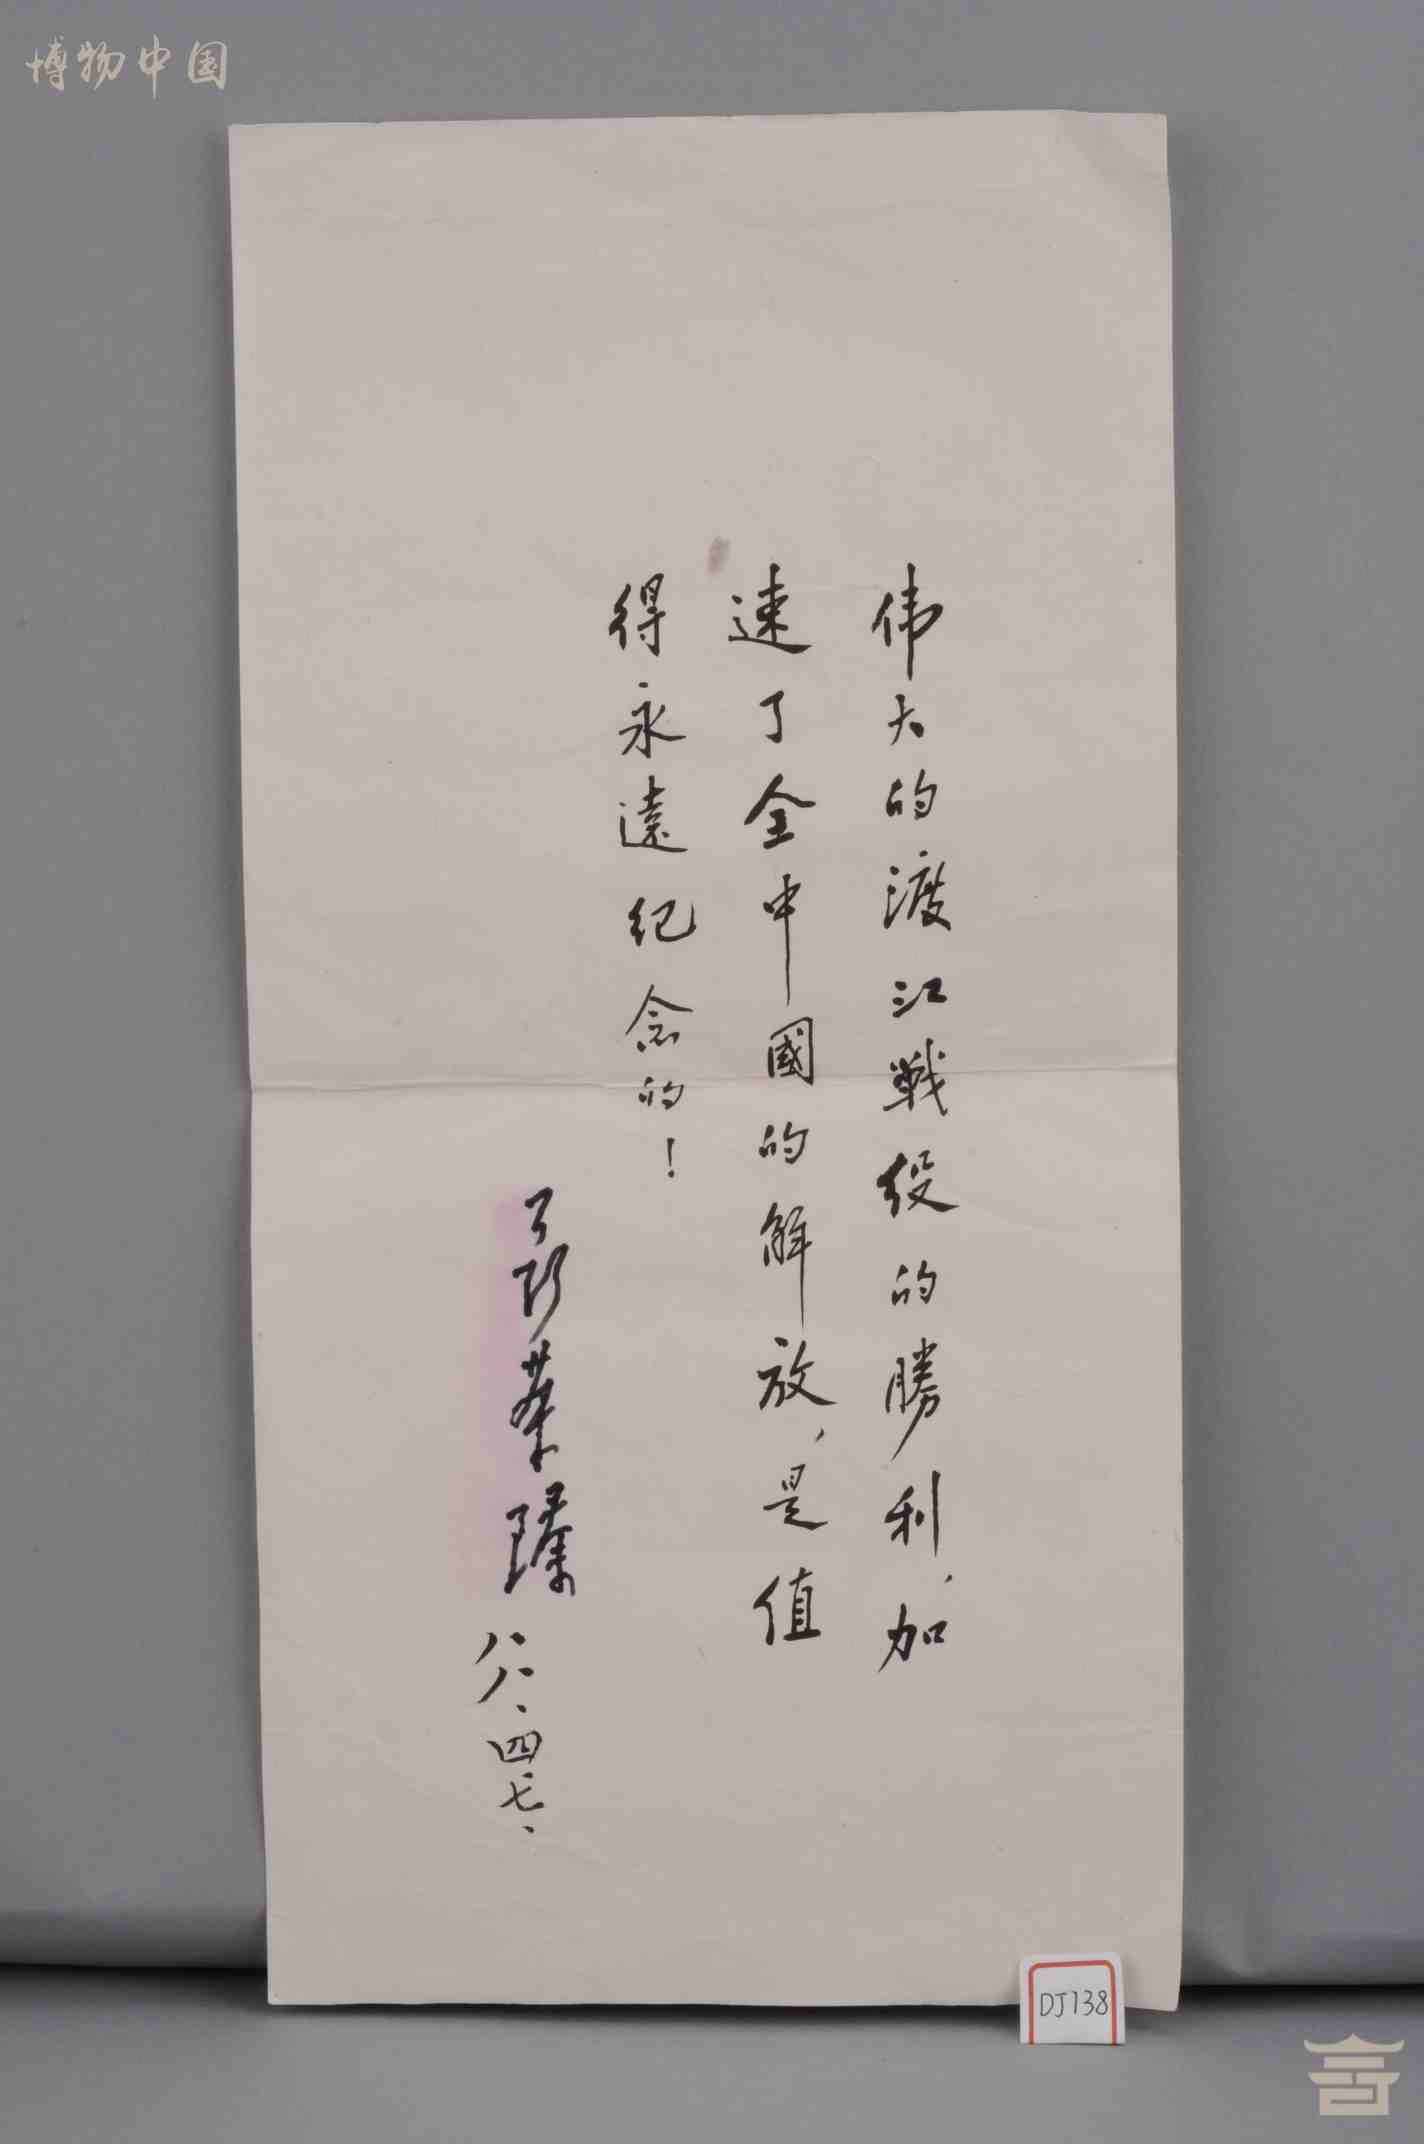 博物中国
伟大的渡江戰役的勝利，加
速了全中國的解放，是值
得永遠纪念的！
聶荣臻
八八、四、七、
DJ138